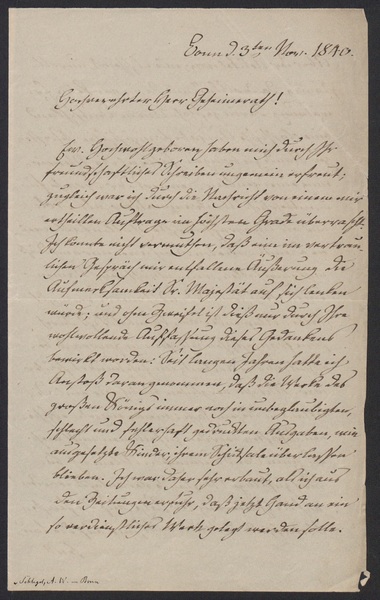 Bonn d. 3ten Nov. 1840.
Hochverehrter Herr Geheimerath!
Ew. Hochwohlgeboren haben mich durch Ihr
freundschaftliches Schreiben ungemein erfreut;
zugleich war ich durch die Nachricht von einem mir
ertheilten Auftrage im höchsten Grade überrascht.
Ich konnte nicht vermuthen, daß eine im vertrau-
lichen Gespräch mir entfallene Äußerung die
Aufmerksamkeit Sr. Majestät auf sich lenken
würde; und ohne Zweifel ist dieß nur durch Ihre
wohlwollende Auffassung dieses Gedankens
bewirkt worden. Seit langen Jahren hatte ich
Anstoß daran genommen, daß die Werke des
großen Königs immer noch in unbeglaubigten,
schlecht und fehlerhaft gedruckten Ausgaben, wie
ausgesetzte Kinder, ihrem Schicksale überlassen
blieben. Ich war daher sehr erbaut, als ich aus
den Zeitungen erfuhr, daß jetzt Hand an ein
so verdienstliches Werk gelegt werden solle.
Schlegel, A. W. – Bonn